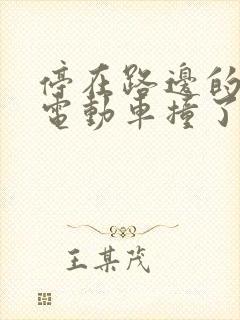 停在路邊的
電動車撞了
王某茂